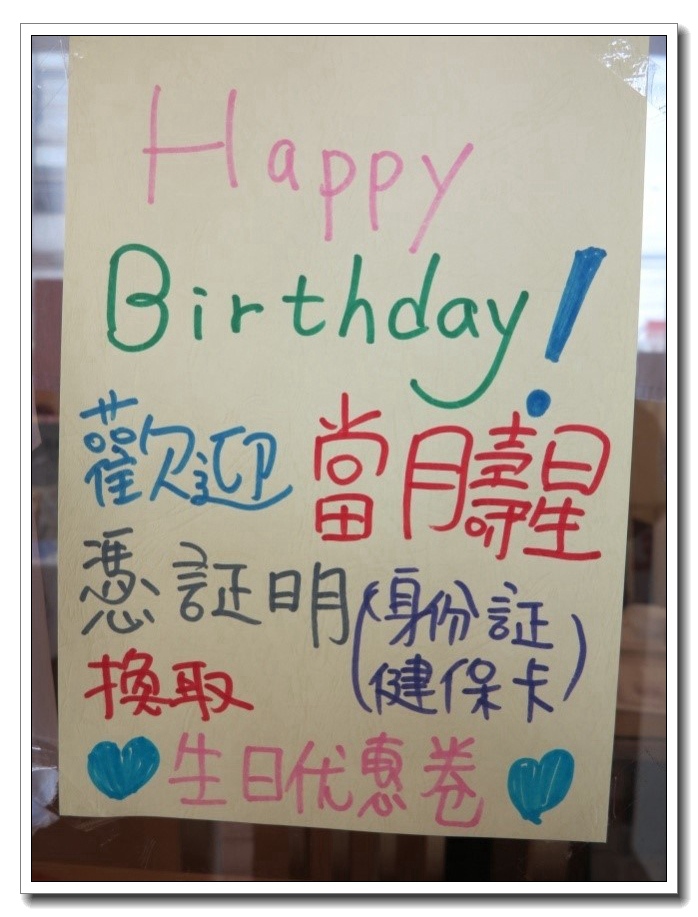 Happy
Birthday!
歡迎 當月壽星
憑証明(身份証
健保卡)
換取
生日优惠卷